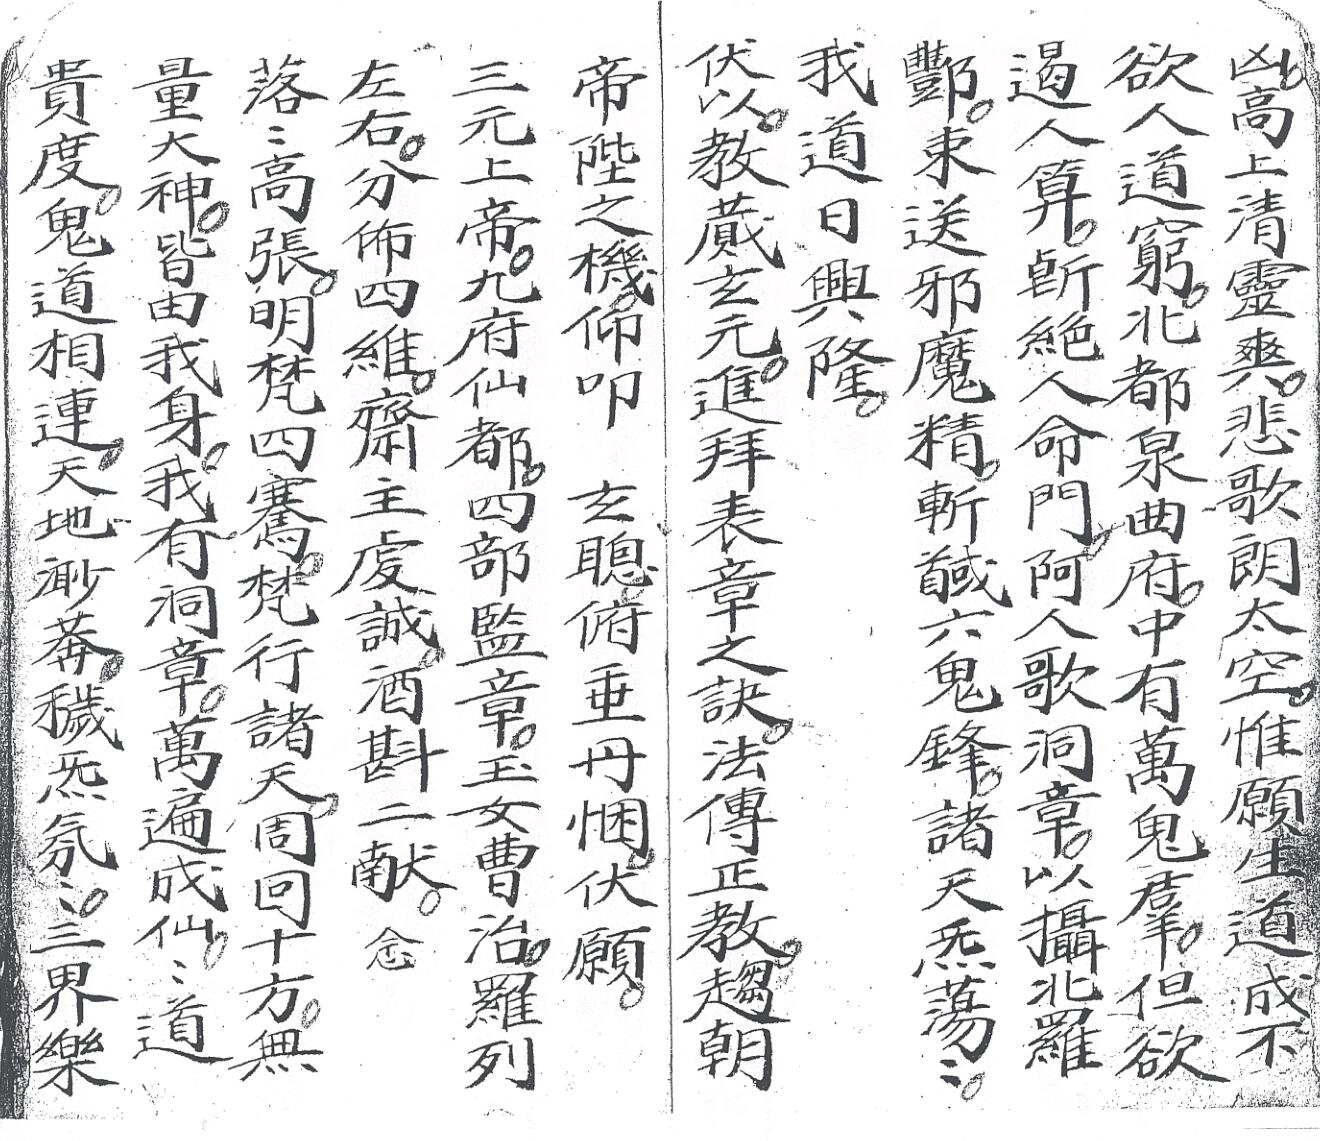 凶。高上清靈爽。悲歌朗太空。惟願生道成不
欲人道窮。北都泉曲府。中有萬鬼羣。但欲
遏人算。斬絕人命門。阿人歌洞章。以攝北羅
酆。束送邪魔精。斬馘六鬼鋒。諸天炁蕩〻。
我道日興隆。
伏以。教蕆玄元。進拜表章之訣。法傳正教。趨朝
帝陛之機。仰叩　玄聰。俯垂丹悃。伏願。
三元上帝。九府仙都。四部監章。玉女曹治。羅列
左右。分佈四維。齋主虔誠。酒斟二献。念
落〻高張。明梵四騫。梵行諸天。周回十方。無
量大神。皆由我身。我有洞章。萬遍成仙。〻道
貴度。鬼道相連。天地渺莽。穢炁氛〻。三界樂